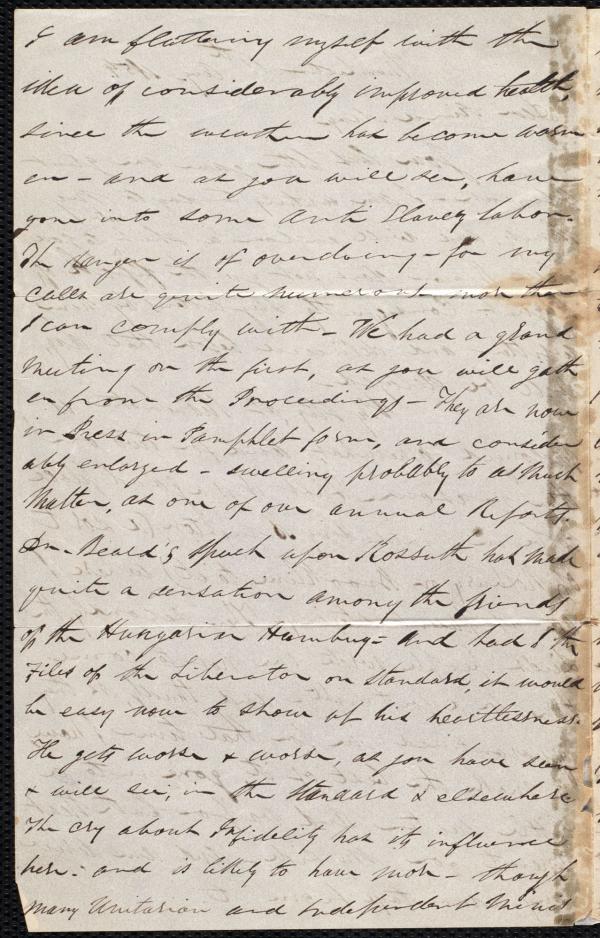 I am flattering myself with the
idea of considerably improved health,
since the weather has become warm
er - and as you will see, have
gone into some Anti Slavery labor.
The danger is of overdoing - for my
Calls are quite numerous - more than
I can comply with - We had a grand
Meeting on the first, as you will gath
er from the Proceedings - They are now
in Press in Pamphlet form, and consider
ably enlarged - swelling probably to as much
Matter, as one of our annual Reports.
Dr. Beard's Speech upon Kossuth has made
quite a sensation among the friends
of the Hungarian Humbug - and had I the
Files of the Liberator or Standard, it would
be easy now to show up his heartlessness.
He gets worse & worse, as you have seen
& will see, in the Standard & elsewhere
The cry about Infidelity has its influence
here - and is likely to have more - though
many Unitarian and Independent Minds